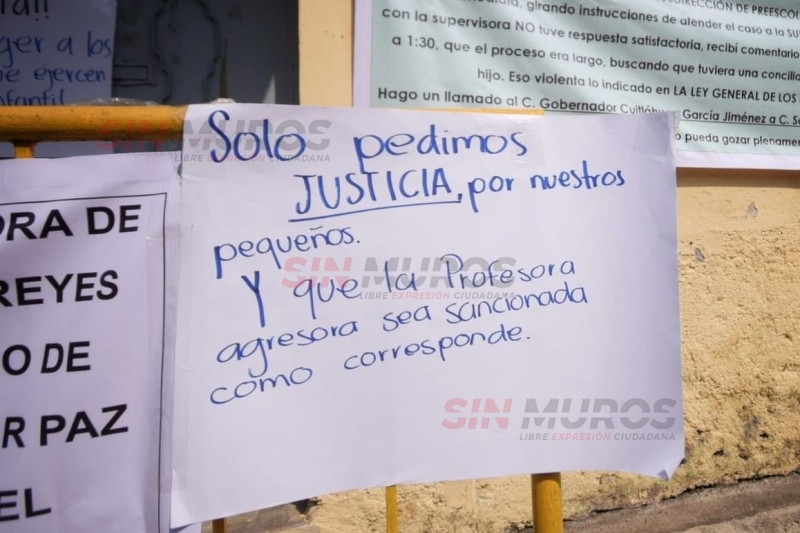 ger a los
e ejercen
nfantil
girando instrucciones de atender el caso a la
con la supervisora NO tuve respuesta satisfactoria, recibí comentario
a 1:30, que el proceso era largo, buscando que tuviera una concilia
hijo. Eso violenta lo indicado en LA LEY GENERAL DE LOS
Hago un llamado al C. Gobernador Cuitláhuac García Jiménez a C. Se
o pueda gozar plenamen
ORA DE
REYES
O DE
R PAZ
EL
Solo pedimos
JUSTICIA, por nuestros
pequeños.
Y que la Profesora
agresora sea sancionada
como corresponde.
SIN MUROS
LIBRE EXPRESIÓN CIUDADANA
SIN MUROS
LIBRE EXPRESIÓN CIUDADANA
SIN MUROS
LIBRE EXPRESIÓN CIUDADANA
SIN MUROS
LIBRE EXPRESIÓN CIUDADANA